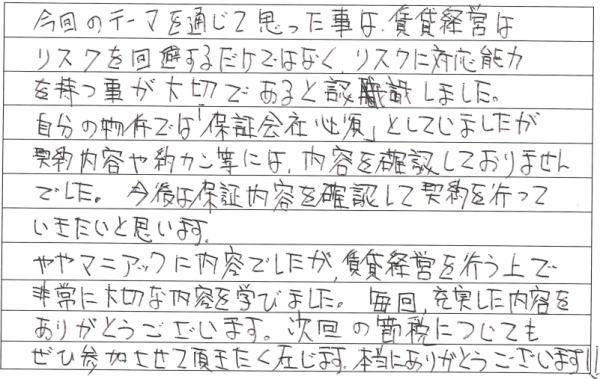 今回のテーマを通じて思った事は、賃貸経営は
リスクを回避するだけではなく、リスクに対応能力
を持つ事が大切であると認識しました。
自分の物件では「保証会社必須」としていましたが
契約内容や約カン等には、内容を確認しておりません
でした。 今後は保証内容を確認して契約を行って
いきたいと思います。
ややマニアックに内容でしたが、賃貸経営を行う上で
非常に大切な内容を学びました。 毎回、充実した内容を
ありがとうございます。次回の節税についても
ぜひ参加させて頂きたく存じます。本当にありがとうございます!!